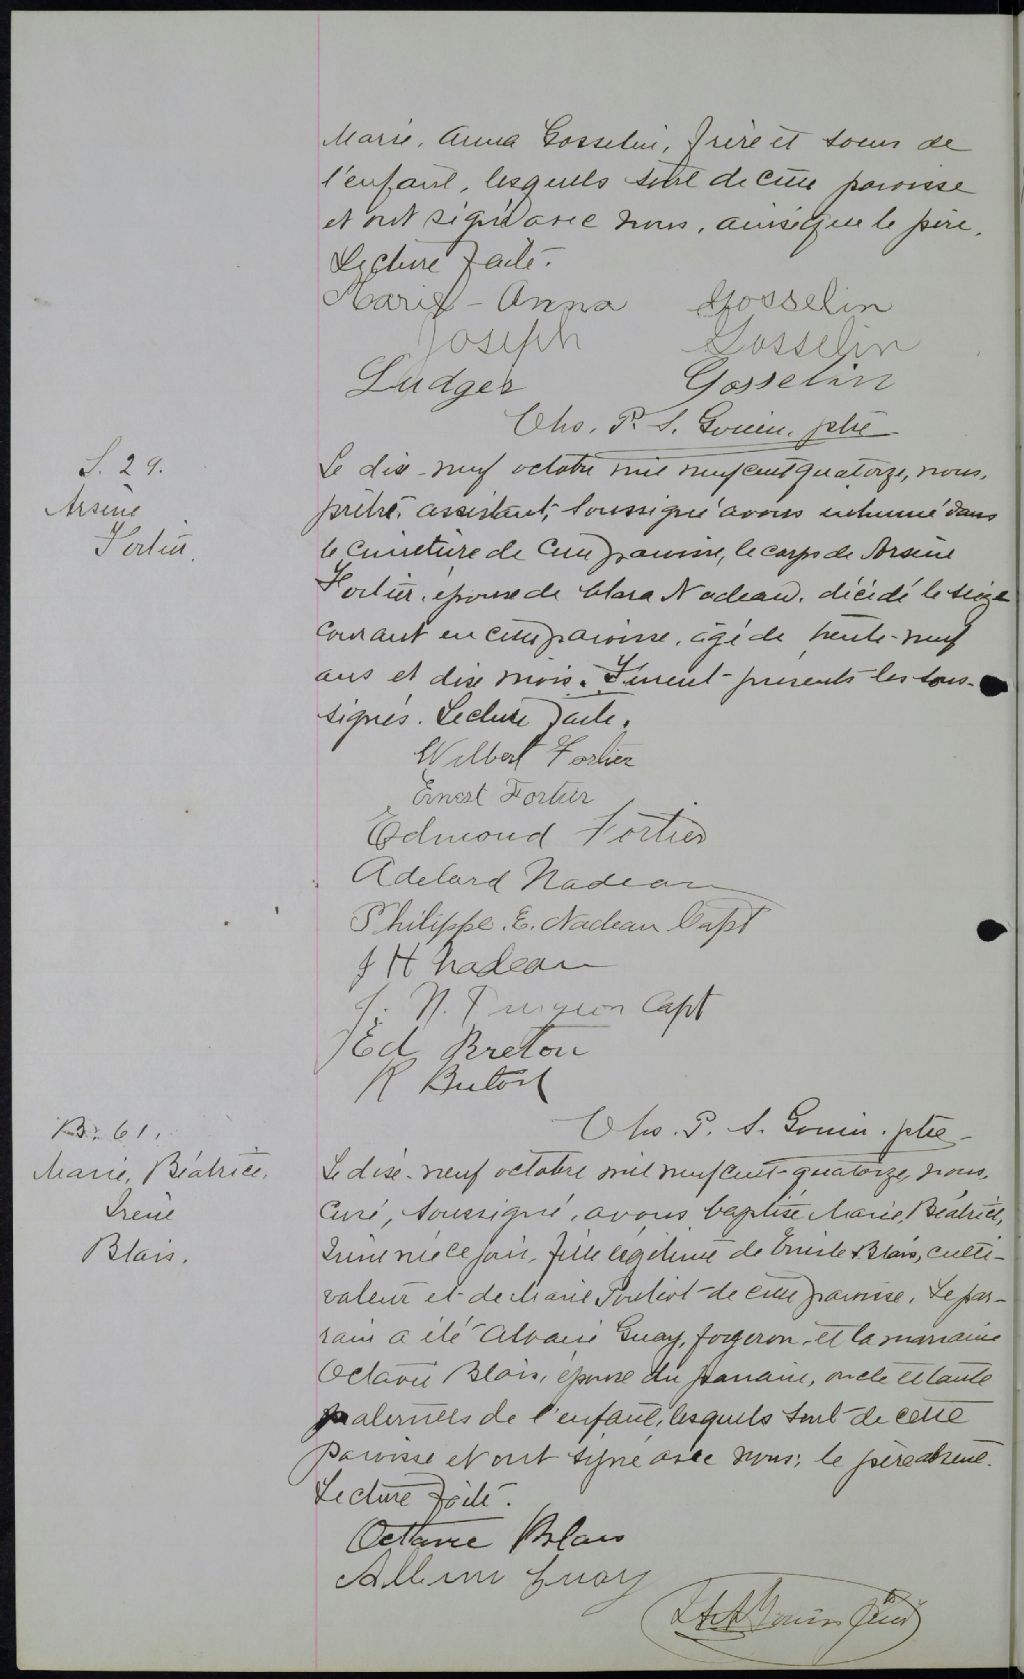 Marie, Anna Gosselin, frère et soeur de
l'enfant, lesquels sont de cette paroisse
et ont signé avec nous, ainsi que le père.
Lecture faite.
Marie-Anna Gosselin
Joseph Gosselin
Ludger Gosselin
Chs. P. S. Gouin. ptre
S. 29.
Arsène
Fortier.
Le dix-neuf octobre mil neuf cent quatorze, nous,
prêtre, assistant, soussigné avons inhumé dans
le cimetière de cette paroisse, le corps de Arsène
Fortier, époux de Clara Nadeau, décédé le seize
courant en cette paroisse, âgé de trente-neuf
ans et dix mois. Furent présents les sous-
signés. Lecture faite.
Wilbert Fortier
Ernest Fortier
Edmond Fortier
Adelard Nadeau
Philippe. E. Nadeau Capt
J H Nadeau
J. N. Turgeon Capt
Ed Breton
R Breton
Chs. P. S. Gouin. ptre
B. 61.
Marie, Béatrice,
Irène
Blais.
Le dix-neuf octobre mil neuf cent quatorze, nous,
curé, soussigné, avons baptisé Marie, Béatrice,
Irène née ce jour, fille légitime de Emile Blais, culti-
vateur et de Marie Pouliot de cette paroisse. Le par-
rain a été Guay, forgeron, et la marraine
Octavie Blais, épouse du parrain, oncle et tante
paternels de l'enfant, lesquels sont de cette
paroisse et ont signé avec nous; le père absent.
Lecture faite.
Octavie Blais
Guay
Gouin